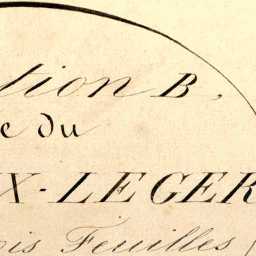 tion B,
e du
X-LEGER
ois Feuilles